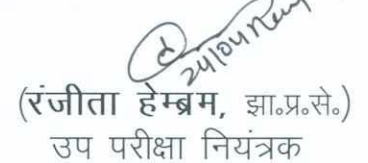 24/04
(रंजीता हेम्ब्रम, झा.प्र.से.)
उप परीक्षा नियंत्रक